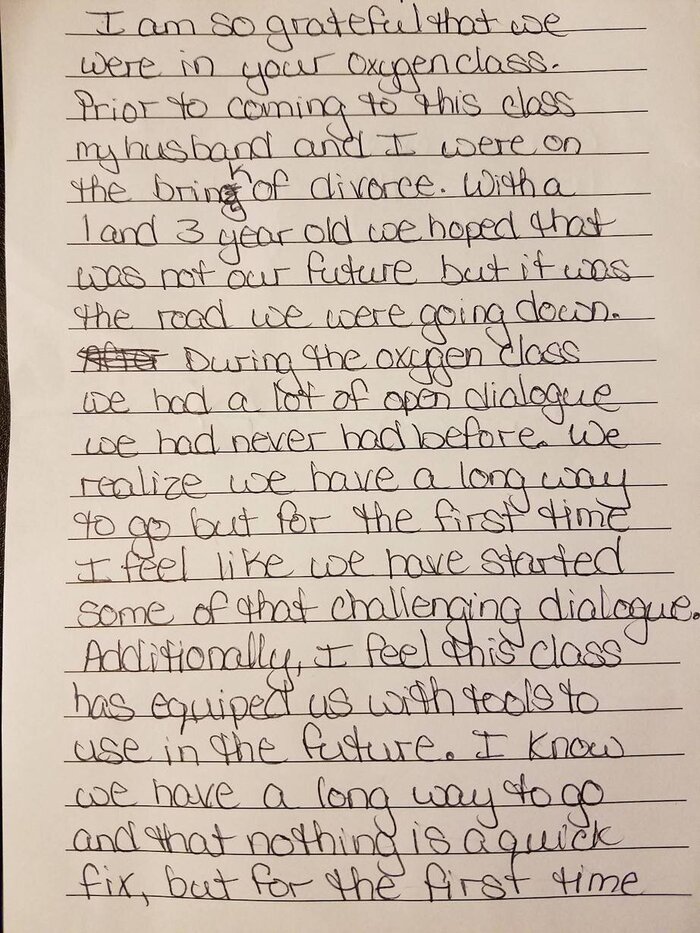 I am so grateful that we
were in your oxygen class.
Prior to coming to this class
my husband and I were on
the brink of divorce. With a
1 and 3 year old we hoped that
was not our future but it was
the road we were going down.
During the oxygen class
we had a lot of open dialogue
we had never had before. We
realize we have a long way
to go but for the first time
I feel like we have started
some of that challenging dialogue.
Additionally, I feel this class
has equiped us with tools to
use in the future. I know
we have a long way to go
and that nothing is a quick
fix, but for the first time